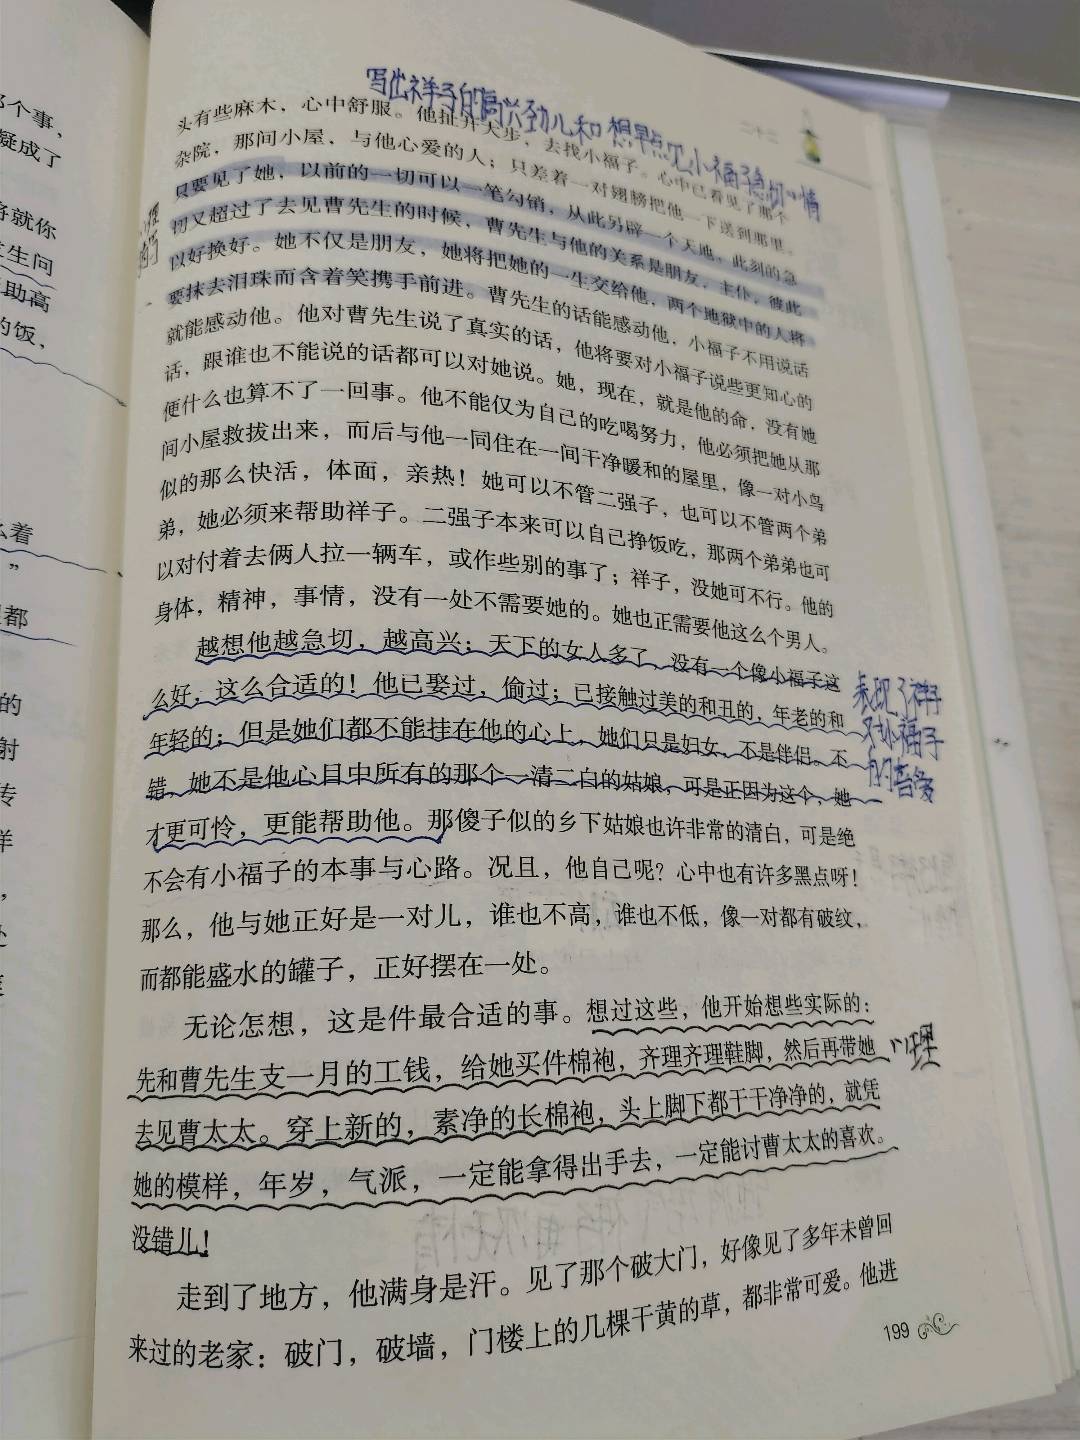 个事，
凝成了
将就你
生问
助高
的饭，
么着
”
都
的
射
传
样
，
写出祥子的高兴劲儿和想早点见小福子急切心情
二十二
头有些麻木，心中舒服。他扯开大步，去找小福子。心中已看见了那个
杂院，那间小屋，与他心爱的人；只差着一对翅膀把他一下送到那里。
只要见了她，以前的一切可以一笔勾销，从此另辟一个天地。此刻的急
切又超过了去见曹先生的时候，曹先生与他的关系是朋友，主仆，彼此
以好换好。她不仅是朋友，她将把她的一生交给他，两个地狱中的人将
要抹去泪珠而含着笑携手前进。曹先生的话能感动他，小福子不用说话
就能感动他。他对曹先生说了真实的话，他将要对小福子说些更知心的
话，跟谁也不能说的话都可以对她说。她，现在，就是他的命，没有她
便什么也算不了一回事。他不能仅为自己的吃喝努力，他必须把她从那
间小屋救拔出来，而后与他一同住在一间干净暖和的屋里，像一对小鸟
似的那么快活，体面，亲热！她可以不管二强子，也可以不管两个弟
弟，她必须来帮助祥子。二强子本来可以自己挣饭吃，那两个弟弟也可
以对付着去俩人拉一辆车，或作些别的事了；祥子，没她可不行。他的
身体，精神，事情，没有一处不需要她的。她也正需要他这么个男人。
越想他越急切，越高兴；天下的女人多了，没有一个像小福子这
么好，这么合适的！他已娶过，偷过；已接触过美的和丑的，年老的和
年轻的；但是她们都不能挂在他的心上，她们只是妇女，不是伴侣。不
错，她不是他心目中所有的那个一清二白的姑娘，可是正因为这个，她
才更可怜，更能帮助他。那傻子似的乡下姑娘也许非常的清白，可是绝
不会有小福子的本事与心路。况且，他自己呢？心中也有许多黑点呀！
那么，他与她正好是一对儿，谁也不高，谁也不低，像一对都有破纹，
而都能盛水的罐子，正好摆在一处。
表现了祥子
对小福子
的喜爱
无论怎想，这是件最合适的事。想过这些，他开始想些实际的：
先和曹先生支一月的工钱，给她买件棉袍，齐理齐理鞋脚，然后再带她
去见曹太太。穿上新的，素净的长棉袍，头上脚下都干干净净的，就凭
她的模样，年岁，气派，一定能拿得出手去，一定能讨曹太太的喜欢。
没错儿！
心理
走到了地方，他满身是汗。见了那个破大门，好像见了多年未曾回
来过的老家：破门，破墙，门楼上的几棵干黄的草，都非常可爱。他进
199